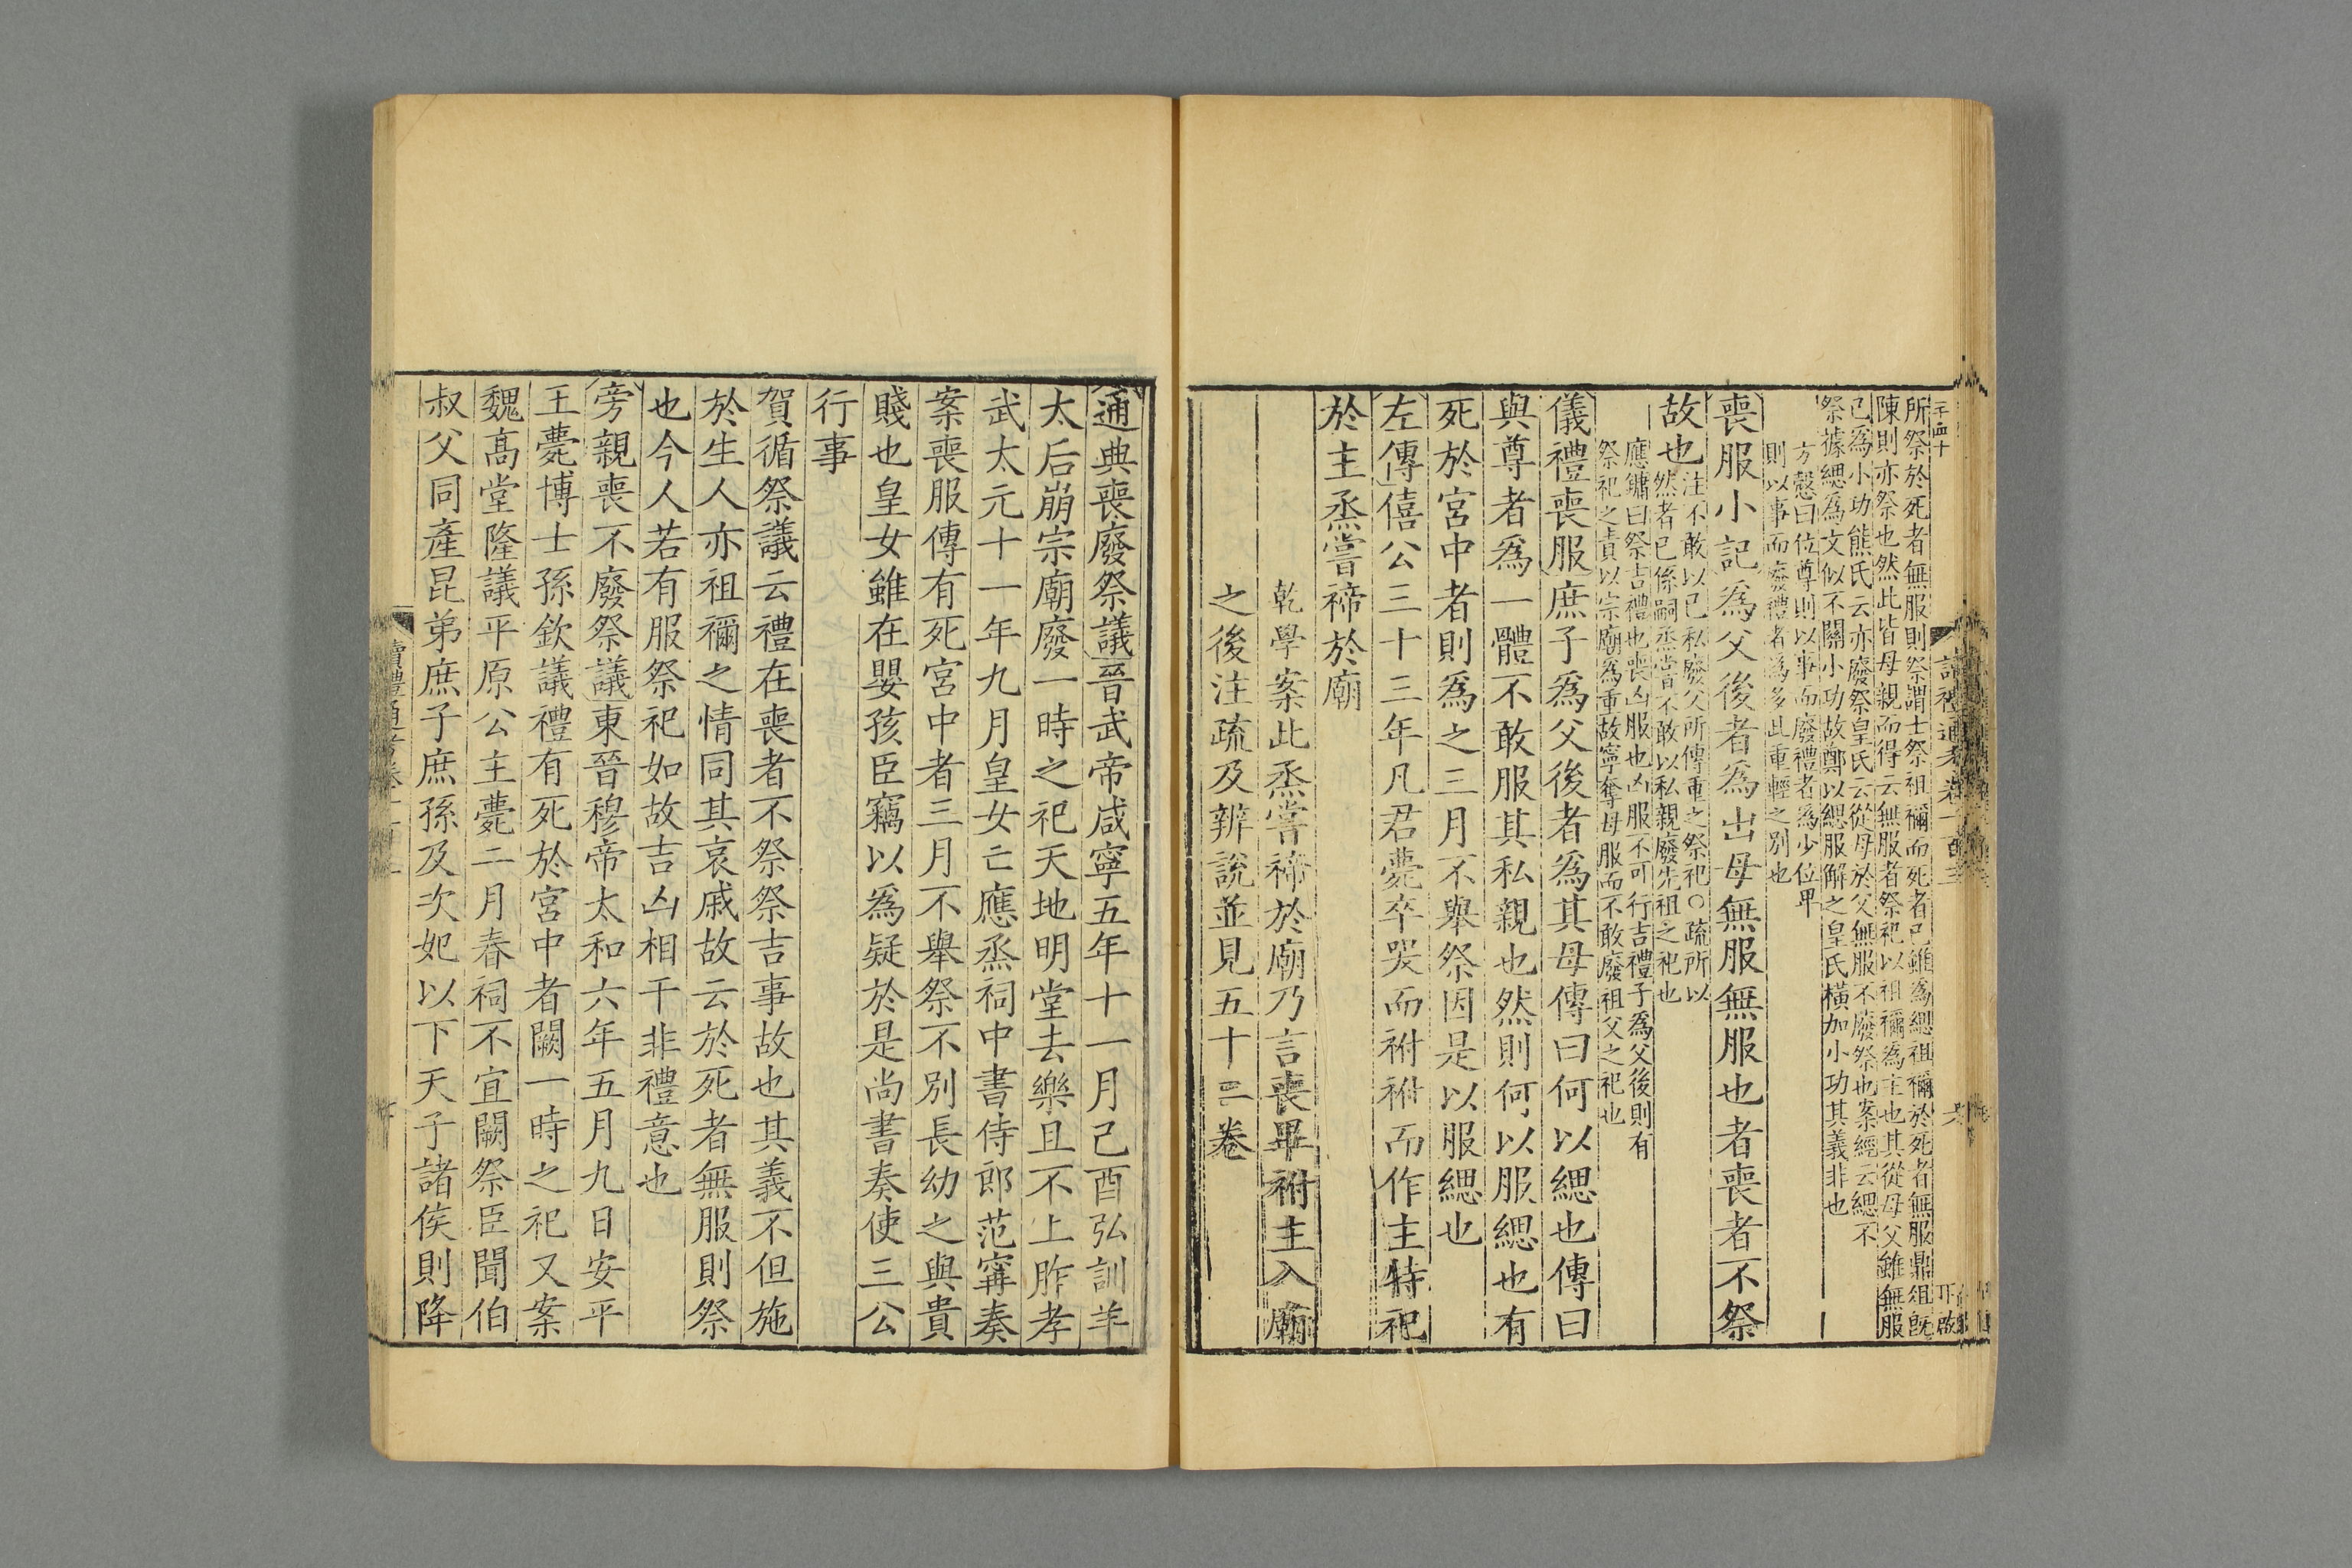 所祭於死者無服則祭謂士祭祖禰而死者已雖爲緦祖禰於死者無服鼎俎旣
陳則亦祭也然此皆母親而得云無服者祭祀以祖禰爲主也其從母父雖無服
已爲小功熊氏云亦廢祭皇氏云從母於父無服不廢祭也案經云緦不
祭據緦爲文似不關小功故鄭以緦服解之皇氏橫加小功其義非也
方慤曰位尊則以事而廢禮者爲少位卑
則以事而廢禮者爲多此重輕之別也
喪服小記爲父後者爲出母無服無服也者喪者不祭
故也
注不敢以已私廢父所傳重之祭祀○疏所以
然者已係嗣烝嘗不敢以私親廢先祖之祀也
應鏞曰祭吉禮也喪凶服也凶服不可行吉禮子爲父後則有
祭祀之責以宗廟爲重故寧奪母服而不敢廢祖父之祀也
儀禮喪服庶子爲父後者爲其母傳曰何以緦也傳曰
與尊者爲一體不敢服其私親也然則何以服緦也有
死於宮中者則爲之三月不舉祭因是以服緦也
左傳僖公三十三年凡君薨卒哭而祔祔而作主特祀
於主烝嘗禘於廟
乾學案此烝嘗禘於廟乃言喪畢祔主入廟
之後注疏及辨說並見五十三卷
通典喪廢祭議晉武帝咸寧五年十一月己酉弘訓羊
太后崩宗廟廢一時之祀天地明堂去樂且不上胙孝
武太元十一年九月皇女亡應烝祠中書侍郎范甯奏
案喪服傳有死宮中者三月不舉祭不別長幼之與貴
賤也皇女雖在嬰孩臣竊以爲疑於是尚書奏使三公
行事
賀循祭議云禮在喪者不祭祭吉事故也其義不但施
於生人亦祖禰之情同其哀戚故云於死者無服則祭
也今人若有服祭祀如故吉凶相干非禮意也
旁親喪不廢祭議東晉穆帝太和六年五月九日安平
王薨博士孫欽議禮有死於宮中者闕一時之祀又案
魏高堂隆議平原公主薨二月春祠不宜闕祭臣聞伯
叔父同產昆弟庶子庶孫及次妃以下天子諸侯則降